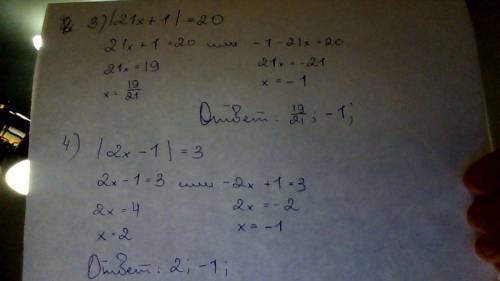 3) |21x+1|=20
21x+1=20 или -1-21x=20
21x=19 21x=-21
x=19/21 x=-1
Ответ: 19/21; -1;
4) |2x-1|=3
2x-1=3 или -2x+1=3
2x=4 2x=-2
x=2 x=-1
Ответ: 2; -1;